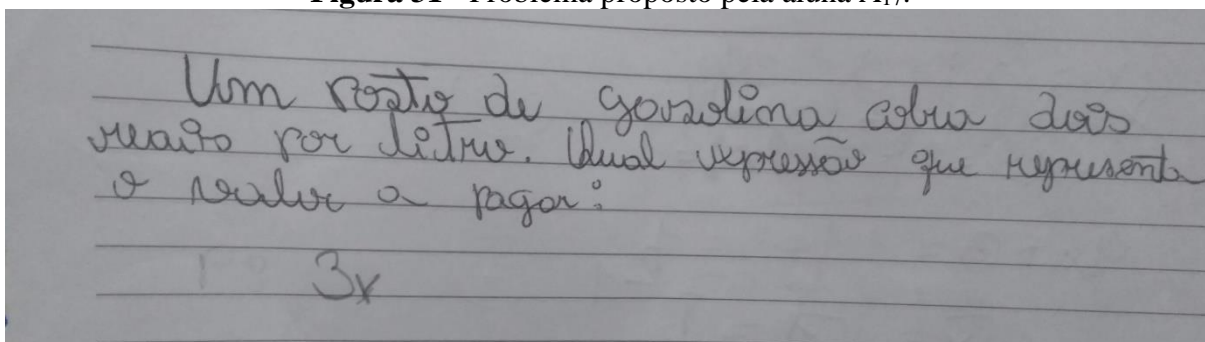 Figura 31 - Problema proposto pela aluna A17.
Um posto de gasolina cobra dois
reais por litro. Qual expressão que representa
o valor a pagar:
3x